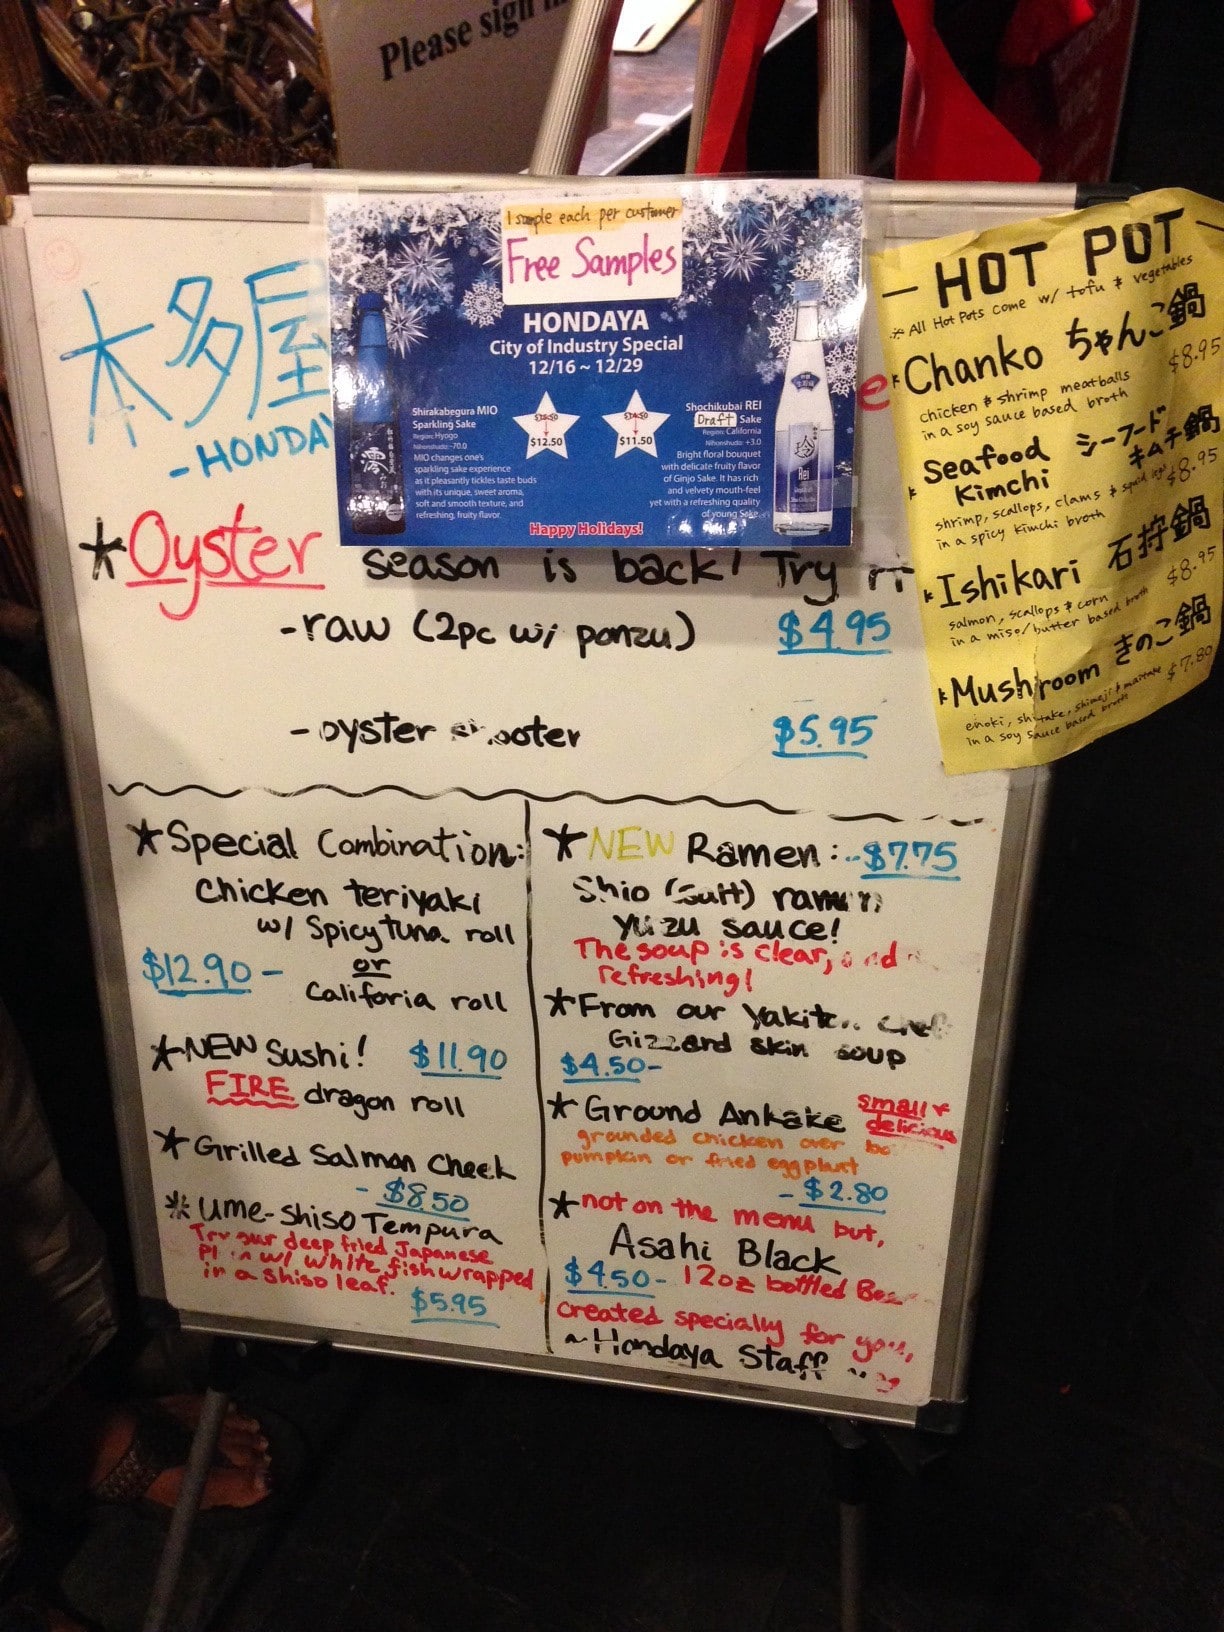 Please sign
1 sample each per customer
Free Samples
HONDAYA
City of Industry Special
12/16 ~ 12/29
Shirakabegura MIO
Sparkling Sake
Region: Hyogo
Nihonshudo: -70.0
MIO changes one's
sparkling sake experience
as it pleasantly tickles taste buds
with its unique, sweet aroma,
soft and smooth texture, and
refreshing, fruity flavor.
$12.50
$14.50
$11.50
Shochikubai REI
Draft Sake
Region: California
Nihonshudo: +3.0
Bright floral bouquet
with delicate fruity flavor
of Ginjo Sake. It has rich
and velvety mouth-feel
yet with a refreshing quality
of young Sake.
Rei
Happy Holidays!
本多屋
-HONDA
- HOT POT -
※ All Hot Pots come w/ tofu & vegetables
Chanko ちゃんこ鍋
$8.95
chicken & shrimp meatballs
in a soy sauce based broth
Seafood シーフード
Kimchi キムチ鍋
$8.95
shrimp, scallops, clams & squid legs
in a spicy kimchi broth
Ishikari 石狩鍋
$8.95
salmon, scallops & corn
in a miso/butter based broth
Mushroom きのこ鍋
$7.80
enoki, shitake, shimeji & maitake
in a soy sauce based broth
*Oyster season is back! Try it
-raw (2pc w/ ponzu) $4.95
-oyster shooter $5.95
*Special Combination:
Chicken teriyaki
w/ Spicy tuna roll
$12.90 - or
Califoria roll
*NEW Sushi! $11.90
FIRE dragon roll
*Grilled Salmon Cheek
- $8.50
*Ume-Shiso Tempura
Try our deep fried Japanese
Plum w/ white fish wrapped
in a shiso leaf. $5.95
*NEW Ramen: -$7.75
Shio (salt) ramen
yuzu sauce!
The soup is clear, and
refreshing!
*From our Yakitori chef
Gizzard skin soup
$4.50-
*Ground Ankake small & delicious
grounded chicken over
pumpkin or fried eggplant
- $2.80
*not on the menu but,
Asahi Black
$4.50- 12oz bottled Beer
created specially for you,
~Hondaya Staff